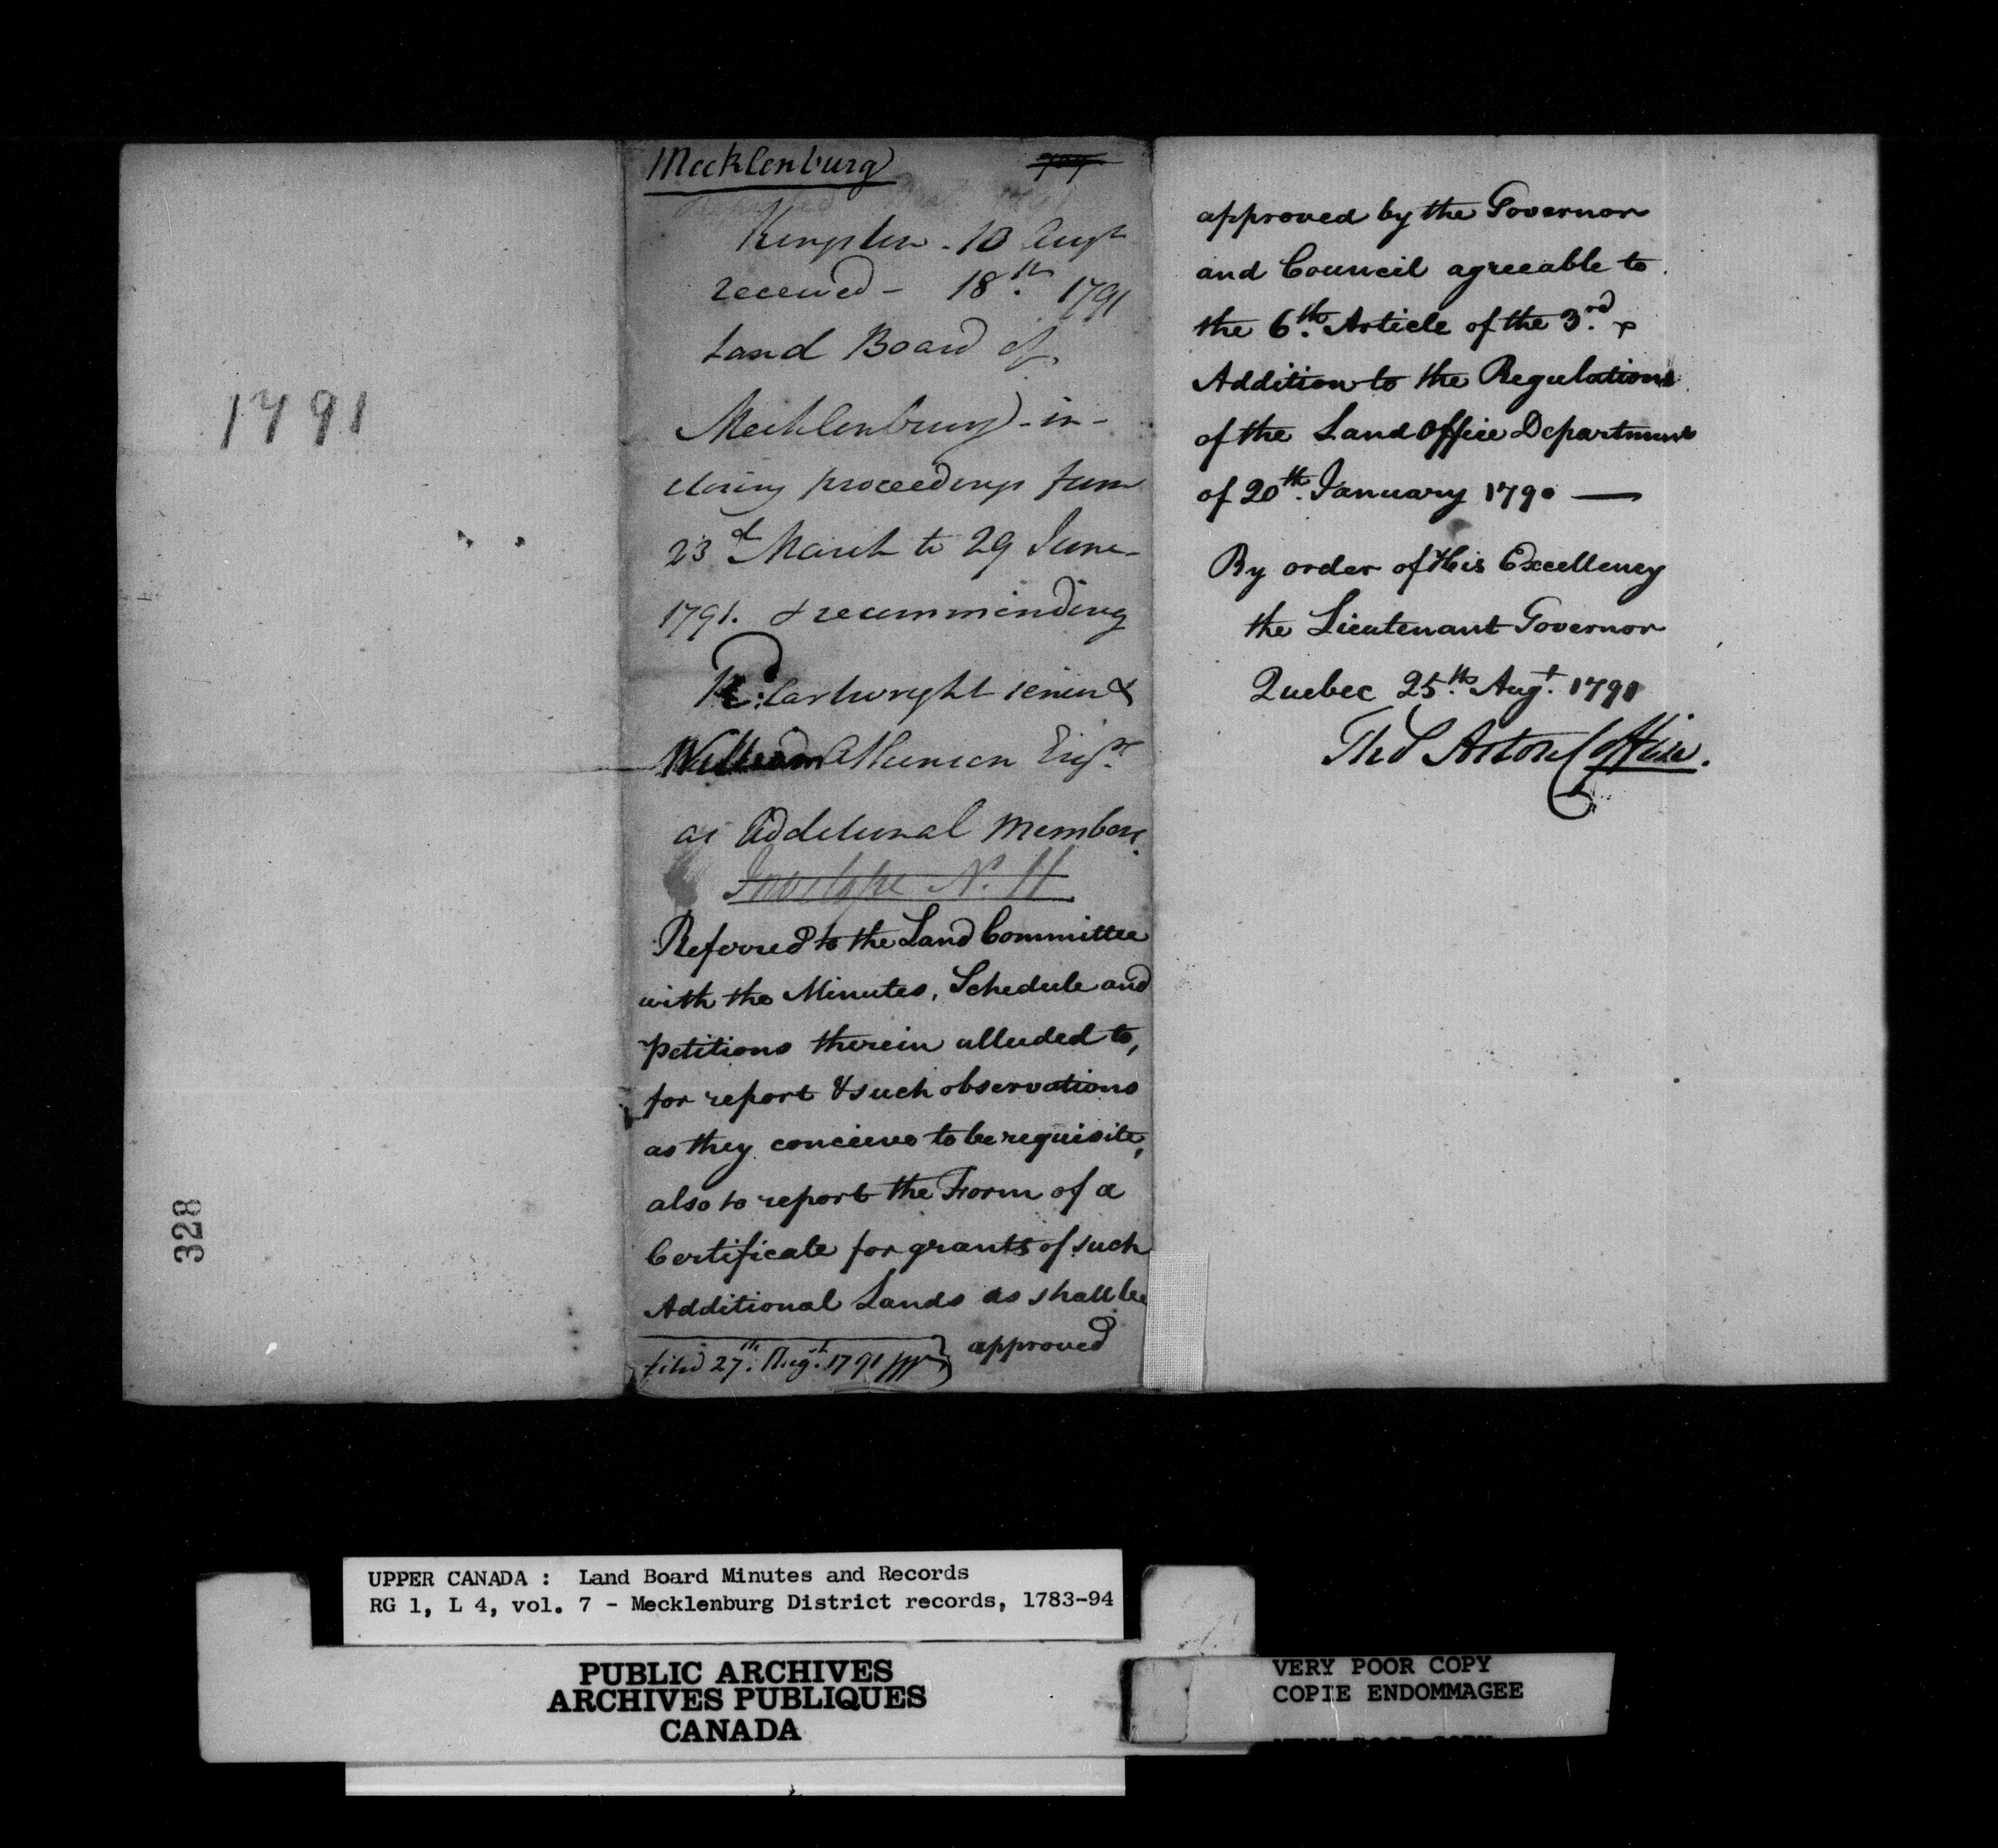 1791
328
Mecklenburg
Kingston - 10 Augt
received - 18th. 1791
Land Board of
Mecklenburg - in-
closing proceedings from
23d March to 29 June -
1791. & recommending
Rd: Cartwright senior &
William Atkinson Esqrs
as Additional Members.
Invelope No. 11
Referred to the Land Committee
with the Minutes, Schedule and
Petitions therein alluded to,
for report & such observations
as they conceive to be requisite,
also to report the Form of a
Certificate for grants of such
Additional Lands as shall be
approved
filed 27th. Augt. 1791
approved by the Governor
and Council agreeable to
the 6th. Article of the 3rd.
Addition to the Regulations
of the Land Office Department
of 20th. January 1790 —
By order of His Excellency
the Lieutenant Governor
Quebec 25th. Augt. 1791
Thos Aston Coffin.
UPPER CANADA : Land Board Minutes and Records
RG 1, L 4, vol. 7 - Mecklenburg District records, 1783-94
PUBLIC ARCHIVES
ARCHIVES PUBLIQUES
CANADA
VERY POOR COPY
COPIE ENDOMMAGEE
VERY POOR COPY